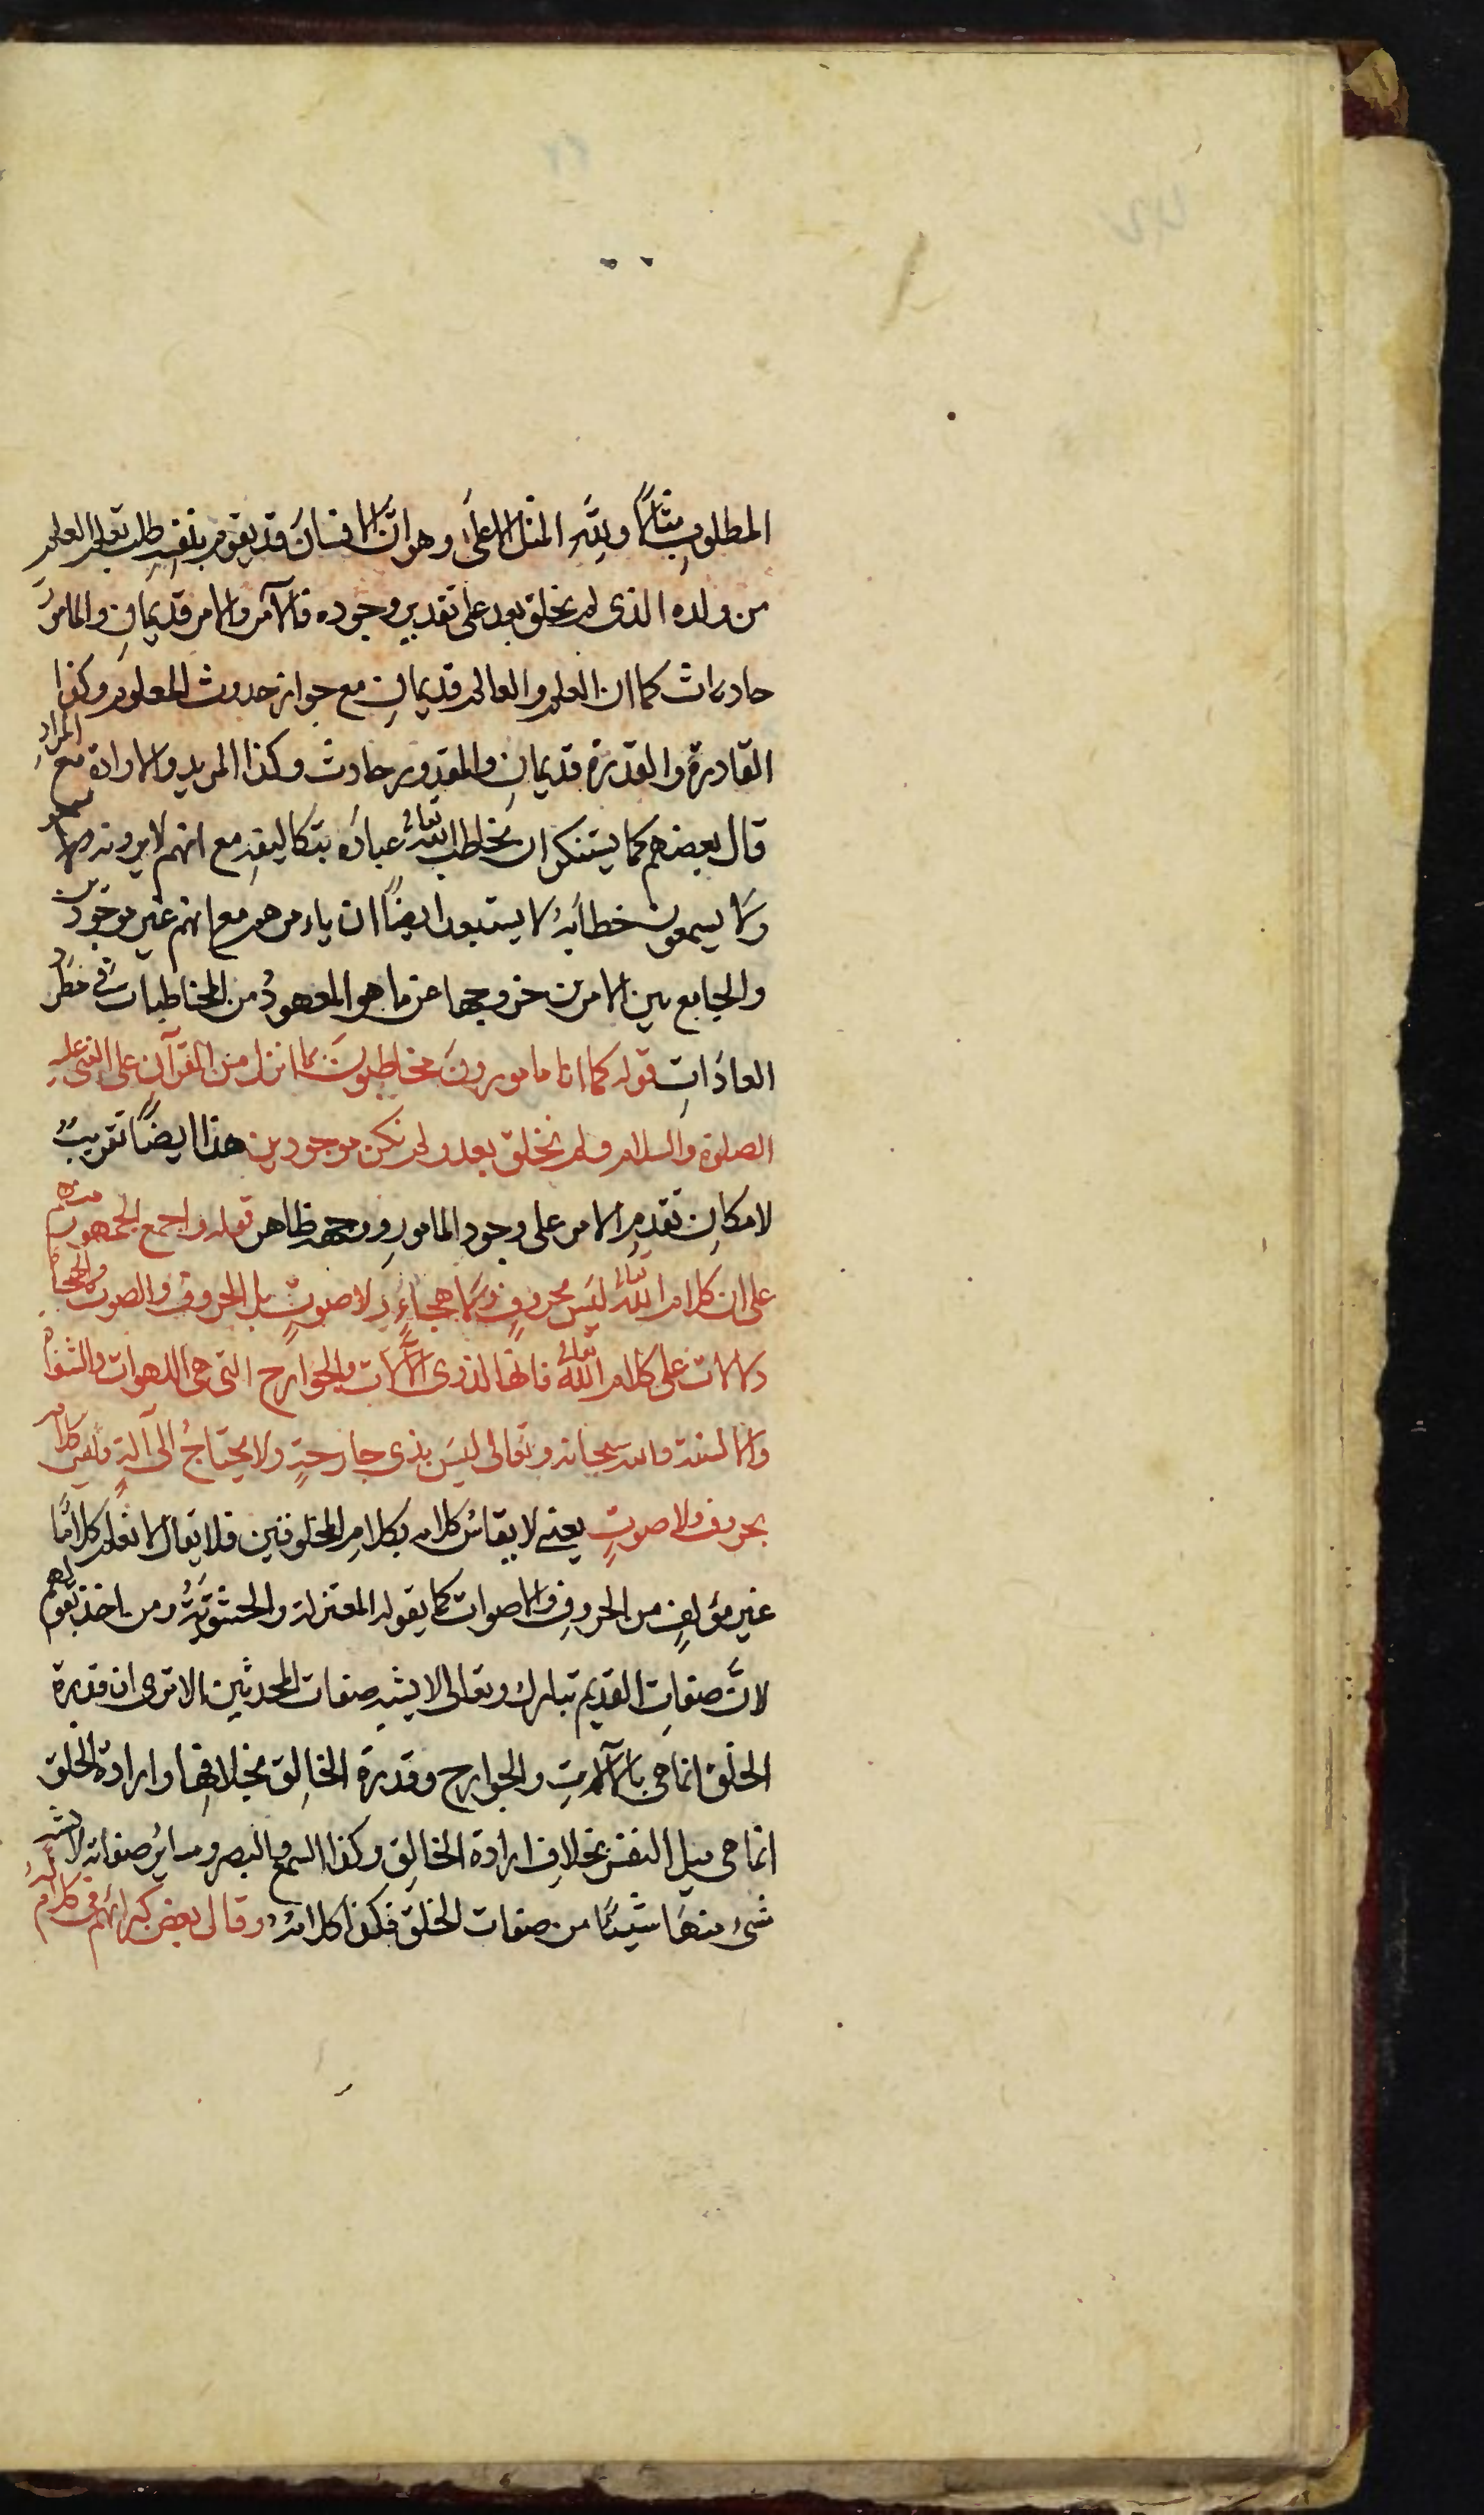 المطلوب مثالًا ولله المثل الاعلى وهو انّ الانسان قد يقوم بنفسه طلب تعلم العلم
من ولده الذى لم يخلق بعد على تقدير وجوده فالآمر والامر قديمان والمامورُ
حادثات كما ان العلم والعالم قديمانِ مع جواز حدوث المعلوم وكذا
القادرة والقدرة قديمانِ والمقدور حادث وكذا المريد والارادة مع المرادِ
قال بعضهم كما يستنكر ان يخاطب اللّٰه تعالى عباده بتكاليفه مع انهم لا يرونه جهرًا
ولا يسمعون خطابَه لا يستبعد ايضًا ان يامرهم مع انهم غير موجودين
والجامع بين الامرين خروجهما عن ما هو المعهودُ من المخاطبات فى مطرد
العادَاتِ قوله كما انا مامورونَ مخاطبونَ بما انزل من القرآنِ على النبى عليه
الصلوة والسلام ولم نخلق بعد ولم نكن موجودين هذا ايضًا تقريبٌ
لامكانِ تقدم الامر على وجود المامورِ ووجهه ظاهر قوله واجمع الجمهور منهم
على ان كلام اللّٰه تعالى ليسَ بحروفٍ ولا هجاءٍ ولا صوتٍ بل الحروف والصوت والهجاءُ
دلالات على كلام اللّٰه تعالى فانها لذوى الآلات والجوارح التى هى اللهوات والشفاه
والالسنة والله سبحانه وتعالى ليسَ بذى جارحةٍ ولا يحتاجُ الى آلةٍ فليس كلامه
بحروف ولا صوتٍ يعنى لا يقاسُ كلامه بكلامِ المخلوقين فلا يقال لا نعلم كلامًا
غير مؤلفٍ من الحروفِ والاصوات كما يقوله المعتزلة والحشويّةُ ومن اخذ بقولهم
لانَّ صفاتِ القديم تبارك وتعالى لا يشبه صفات المحدثين الا ترى ان قدرة
الخلق انما هى بالآلاتِ والجوارح وقدرة الخالِق بخلافها وارادة الخلق
انما هى ميل النفس بخلافِ ارادة الخالِق وكذا السمع والبصر وسائر صفاته لا يشبه
شئ منهَا شيئًا من صفات الخلق فكذا كلامُه وقال بعض كبرائهم فى كلامٍ لهُ